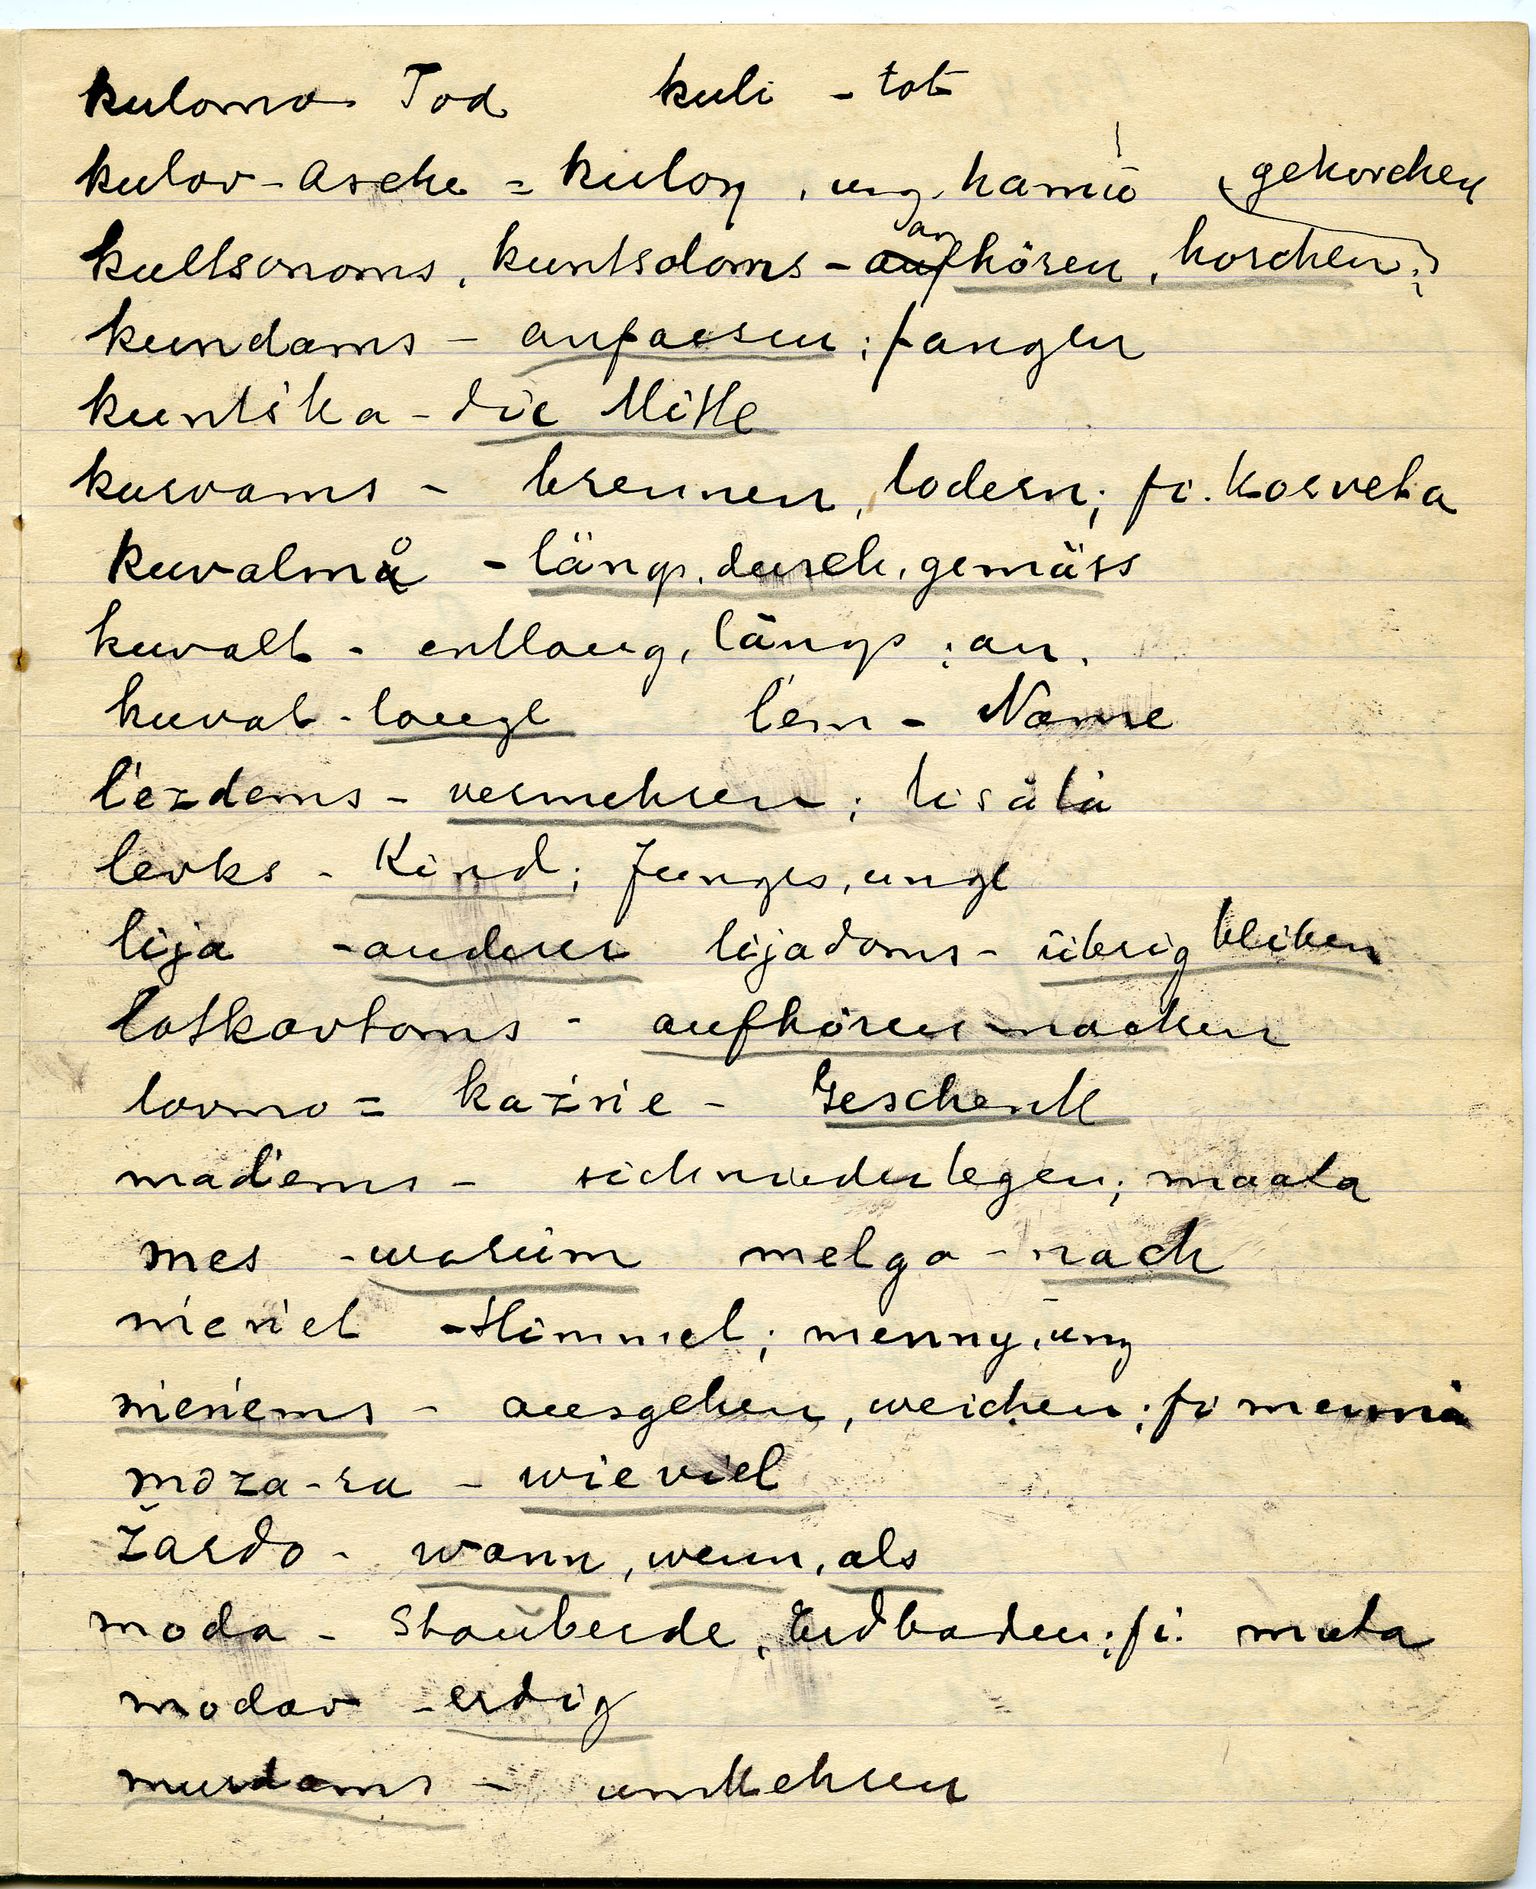 kulomo Tod kuli - tot
kulov - Asche = kuloŋ, ung. hamú gehorchen
kultsonoms, kuntsoloms - anhören, horchen;
kundams - anfassen; fangen
kuntška - die Mitte
kurvams - brennen, lodern; fi. korveta
kuvalmå - längs, durch, gemäss
kuvalt - entlang, längs; an.
kuvat - lange l'em - Name
l'ezdems - vermehren; lisätä
levks - Kind; Junges, unge
lija - anderer lijadoms - übrig bleiben
lotkavtoms - aufhören machen
lovmo = kaźńe - Geschenk
mad'ems - sich niederlegen; maata
mes - warum melga - nach
meńel - Himmel; menny, ung
meńems - ausgehen, weichen; fi mennä
moza-ra - wieviel
žardo - wann, wenn, als
moda - Stauberde, Erdboden; fi. muta
modav - erdig
murdams - umkehren